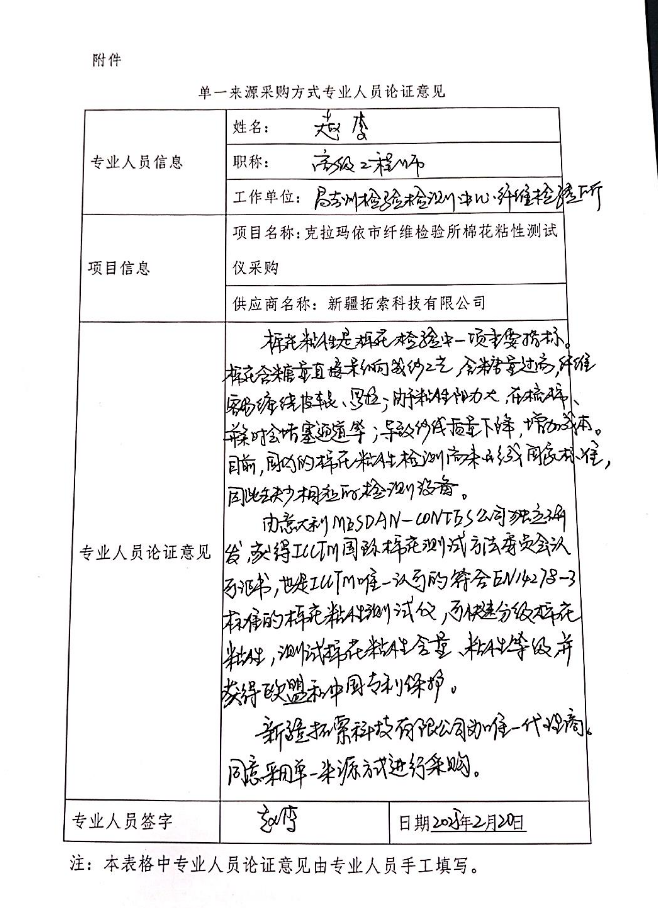 附件
单一来源采购方式专业人员论证意见
专业人员信息
姓名：赵
职称：高级工程师
工作单位：检验检测中心纤维检验所
项目信息
项目名称：克拉玛依市纤维检验所棉花粘性测试
仪采购
供应商名称：新疆拓索科技有限公司
专业人员论证意见
棉花粘性是棉花检验中一项重要指标。
棉花含糖量直接影响纺纱工艺，含糖量过高，纤维
容易缠绕皮辊、罗拉；由于粘性阻力大，在梳棉、
时会堵塞通道等；导致纱线质量下降，增加成本。
目前，国内的棉花粘性检测尚未形成国家标准，
因此缺少相应的检测设备。
由意大利MESDAN-CONTES公司独立研
发，获得ICCTM国际棉花测试方法委员会认
可证书，也是ICCTM唯一认可的符合EN14278-3
标准的棉花粘性测试仪，可快速分级棉花
粘性，测试棉花粘性含量、粘性等级，并
获得欧盟和中国专利保护。
新疆拓索科技有限公司为唯一代理商。
同意采用单一来源方式进行采购。
专业人员签字
赵
日期2025年2月20日
注：本表格中专业人员论证意见由专业人员手工填写。